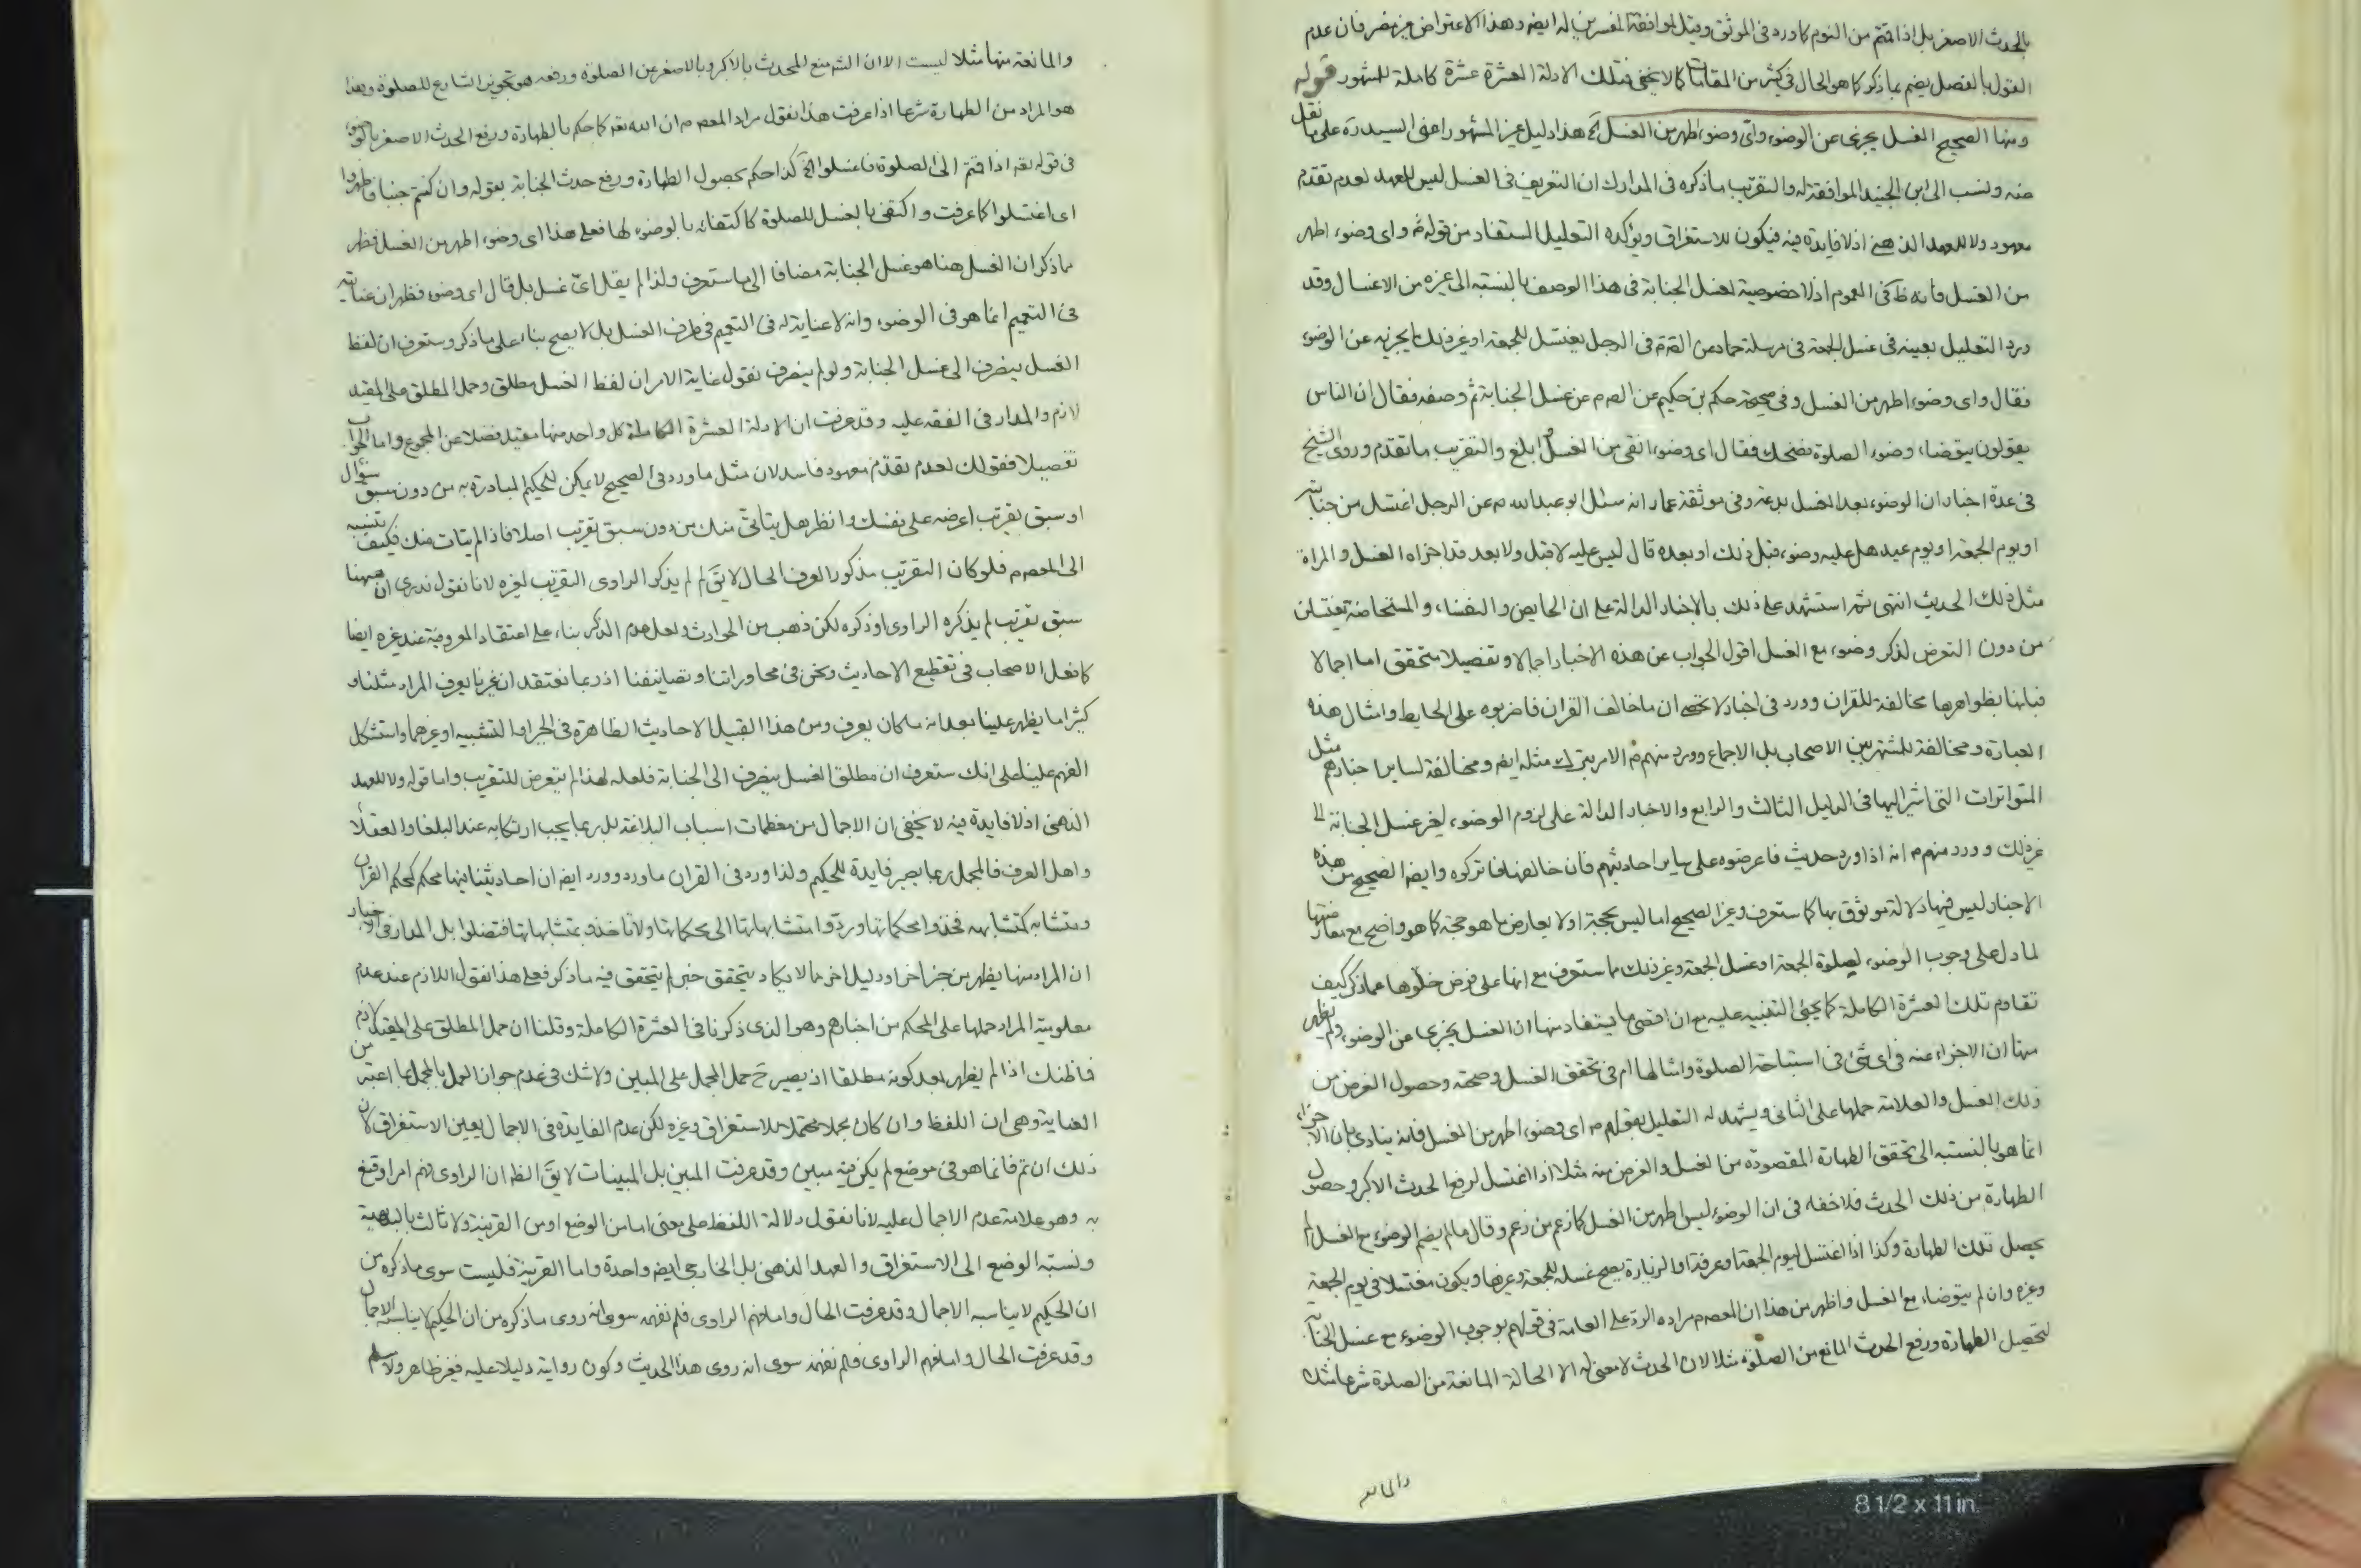 بالحدث الاصغر بل اذا قمتم من النوم كما ورد فى الموثق وقيل لموافقة المفسرين له ايضا وهذا الاعتراض غير مضر فان عدم
القول بالفصل يضم بما ذكر كما هو الحال فى كثير من المقامات كما لا يخفى فتلك الادلة العشرة عشرة كاملة للمشهور قوله
ومنها الصحيح الغسل يجزى عن الوضوء واى وضوء اطهر من الغسل آه هذا دليل غير المشهور اعنى السيد ره على ما نقل
عنه ونسب الى ابن الجنيد الموافقة له والتقريب ما ذكره فى المدارك ان التعريف فى الغسل ليس للعهد لعدم تقدم
معهود ولا للعهد الذهنى اذ لا فايدة فيه فيكون للاستغراق ويؤكده التعليل المستفاد من قوله ع واى وضوء اطهر
من الغسل فانه ظ فى العموم اذ لا خصوصية لغسل الجنابة فى هذا الوصف بالنسبة الى غيره من الاغسال وقد
ورد التعليل بعينه فى غسل الجمعة فى مرسلة حماد عن الصم فى الرجل يغتسل للجمعة او غير ذلك ايجزيه عن الوضوء
فقال واى وضوء اطهر من الغسل وفى صحيحة حكم بن حكيم عن الص م عن غسل الجنابة ثم وصفه فقال ان الناس
يقولون يتوضاء وضوء الصلوة فضحك فقال اى وضوء انقى من الغسل وابلغ والتقريب ما تقدم وروى الشيخ
فى عدة اخبار ان الوضوء بعد الغسل بدعة وفى موثقة عمار انه سئل ابو عبد الله م عن الرجل اغتسل من جنابته
او يوم الجمعة او يوم عيد هل عليه وضوء قبل ذلك او بعده قال ليس عليه لا قبل ولا بعد قد اجزاه الغسل والمراة
مثل ذلك الحديث انتهى ثم استشهد على ذلك بالاخبار الدالة على ان الحايض والنفساء والمستحاضة يغتسلن
من دون التعرض لذكر وضوء مع الغسل اقول الجواب عن هذه الاخبار اجمالا وتفصيلا متحقق اما اجمالا
فبانها بظواهرها مخالفة للقران وورد فى اخبار لا تحصى ان ما خالف القران فاضربوه على الحايط وامثال هذه
العبارة ومخالفة للمشتهر بين الاصحاب بل الاجماع وورد منهم م الامر بترك مثله ايضا ومخالفة لساير اخبارهم مثل
المتواترات التى اشير اليها فى الدليل الثالث والرابع والاخبار الدالة على لزوم الوضوء لغير غسل الجنابة الى
غير ذلك وورد منهم م انه اذا ورد حديث فاعرضوه على ساير احاديثهم فان خالفها فاتركوه وايضا الصحيح من هذه
الاخبار ليس فيها دلالة موثوق بها كما ستعرف وغير الصحيح اما ليس بحجة او لا يعارض ما هو حجة كما هو واضح مع معارضتها
لما دل على وجوب الوضوء لصلوة الجمعة او غسل الجمعة وغير ذلك مما ستعرف مع انها على فرض خلوها عما ذكر كيف
تقاوم تلك العشرة الكاملة كما يجئ التنبيه عليه مع ان اقصى ما يستفاد منها ان الغسل يجزى عن الوضوء ولم يظهر
منها ان الاجزاء عنه فى اى شئ فى استباحة الصلوة وامثالها ام فى تحقق الغسل وصحته وحصول الغرض من
ذلك الغسل والعلامة حملها على الثانى ويشهد له التعليل بقولهم م اى وضوء اطهر من الغسل فانه ينادى بان الاجزاء
انما هو بالنسبة الى تحقق الطهارة المقصودة من الغسل والغرض منه مثلا اذا اغتسل لرفع الحدث الاكبر وحصول
الطهارة من ذلك الحدث فلا خفاء فى ان الوضوء ليس اطهر من الغسل كما زعم من زعم وقال ما لم يضم الوضوء مع الغسل لم
يحصل تلك الطهارة وكذا اذا اغتسل ليوم الجمعة او عرفة او الزيارة يصح غسله للجمعة وغيرها ويكون مغتسلا فى يوم الجمعة
وغيره وان لم يتوضاء مع الغسل واظهر من هذا ان المعصوم م مراده الرد على العامة فى قولهم بوجوب الوضوء مع غسل الجنابة
لتحصيل الطهارة ورفع الحدث المانع من الصلوة مثلا لان الحدث لا معنى له الا الحالة المانعة من الصلوة شرعا مثلا
والمانعة
والمانعة منها مثلا ليست الا ان الش منع المحدث بالاكبر وبالاصغر عن الصلوة ورفعه هو تجويز الشارع للصلوة وهذا
هو المراد من الطهارة شرعا اذا عرفت هذا نقول مراد المعصوم م ان الله تعه كما حكم بالطهارة ورفع الحدث الاصغر بالوضوء
فى قوله تعه اذا قمتم الى الصلوة فاغسلوا آه كذا حكم بحصول الطهارة ورفع حدث الجنابة بقوله وان كنتم جنبا فاطهروا
اى اغتسلوا كما عرفت واكتفى بالغسل للصلوة كاكتفائه بالوضوء لها فعلى هذا اى وضوء اطهر من الغسل فظهر
ما ذكر ان الغسل هنا هو غسل الجنابة مضافا الى ما ستعرف ولذا لم يقل اى غسل بل قال اى وضوء فظهر ان عنايته
فى التعميم انما هو فى الوضوء وانه لا عناية له فى التعميم فى طرف الغسل بل لا يصح بناء على ما ذكر وستعرف ان لفظ
الغسل ينصرف الى غسل الجنابة ولو لم ينصرف نقول غاية الامر ان لفظ الغسل مطلق وحمل المطلق على المقيد
لازم والمدار فى الفقه عليه وقد عرفت ان الادلة العشرة الكاملة كل واحد منها مقيد فضلا عن المجموع واما الجواب
تفصيلا فقولك لعدم تقدم معهود فاسد لان مثل ما ورد فى الصحيح لا يمكن للحكيم المبادرة به من دون سبق سؤال
او سبق تقريب اعرضه على نفسك وانظر هل يتاتى منك من دون سبق تقريب اصلا فاذا لم يتات منك فكيف تنسبه
الى المعصوم م فلو كان التقريب مذكورا لعرف الحال لا يق لم لم يذكر الراوى التقريب لغيره لانا نقول ندرى ان ههنا
سبق تقريب لم يذكره الراوى او ذكره لكن ذهب من الحوادث ولعل عدم الذكر بناء على اعتقاد المعروفية عند غيره ايضا
كما فعل الاصحاب فى تقطيع الاحاديث ونحن فى محاوراتنا وتصانيفنا اذ ربما نعتقد ان غيرنا يعرف المراد مثلنا و
كثيرا ما يظهر علينا بعد انه ما كان يعرف ومن هذا القبيل الاحاديث الظاهرة فى الجبر او التشبيه او غيرهما واستشكل
الفهم علينا على انك ستعرف ان مطلق الغسل ينصرف الى الجنابة فلعله لهذا لم يتعرض للتقريب واما قوله ولا للعهد
الذهنى اذ لا فايدة فيه لا يخفى ان الاجمال من معظمات اسباب البلاغة بل ربما يجب ارتكابه عند البلغاء والعقلاء
واهل العرف فالمجمل ربما يصير فايدة للحكيم ولذا ورد فى القران ما ورد وورد ايضا ان احاديثنا فيها محكم كمحكم القران
ومتشابه كمتشابهه فخذوا بمحكماتها وردوا متشابهاتها الى محكماتها ولا تاخذوا بمتشابهاتها فتضلوا بل المدار فى الاخبار
ان المراد منها يظهر من خبر اخر او دليل اخر مما لا يكاد يتحقق خبر لم يتحقق فيه ما ذكر فعلى هذا نقول اللازم عند عدم
معلومية المراد حملها على المحكم من اخبارهم وهو الذى ذكرنا فى العشرة الكاملة وقلنا ان حمل المطلق على المقيد لازم
فما ظنك اذا لم يظهر بعد كونه مطلقا اذ يصير ح حمل المجمل على المبين ولا شك فى عدم جواز العمل بالمجمل بما اعتبر من
العناية وهى ان اللفظ وان كان مجملا محتملا للاستغراق وغيره لكن عدم الفايدة فى الاجمال يعين الاستغراق لان
ذلك ان تم فانما هو فى موضع لم يكن فيه مبين وقد عرفت المبين بل المبينات لا يق الظ ان الراوى فهم امرا وقنع
به وهو علامة عدم الاجمال عليه لانا نقول دلالة اللفظ على معنى اما من الوضع او من القرينة ولا ثالث بالبديهة
ونسبة الوضع الى الاستغراق والعهد الذهنى بل الخارجى ايضا واحدة واما القرينة فليست سوى ما ذكره من
ان الحكيم لا يناسبه الاجمال وقد عرفت الحال واما فهم الراوى فلم نفهمه سوى انه روى ما ذكره من ان الحكيم لا يناسبه الاجمال
وقد عرفت الحال واما فهم الراوى فلم نفهمه سوى انه روى هذا الحديث وكون رواية دليلا عليه فغير ظاهر ولا مسلم
8 1/2 x 11 in.